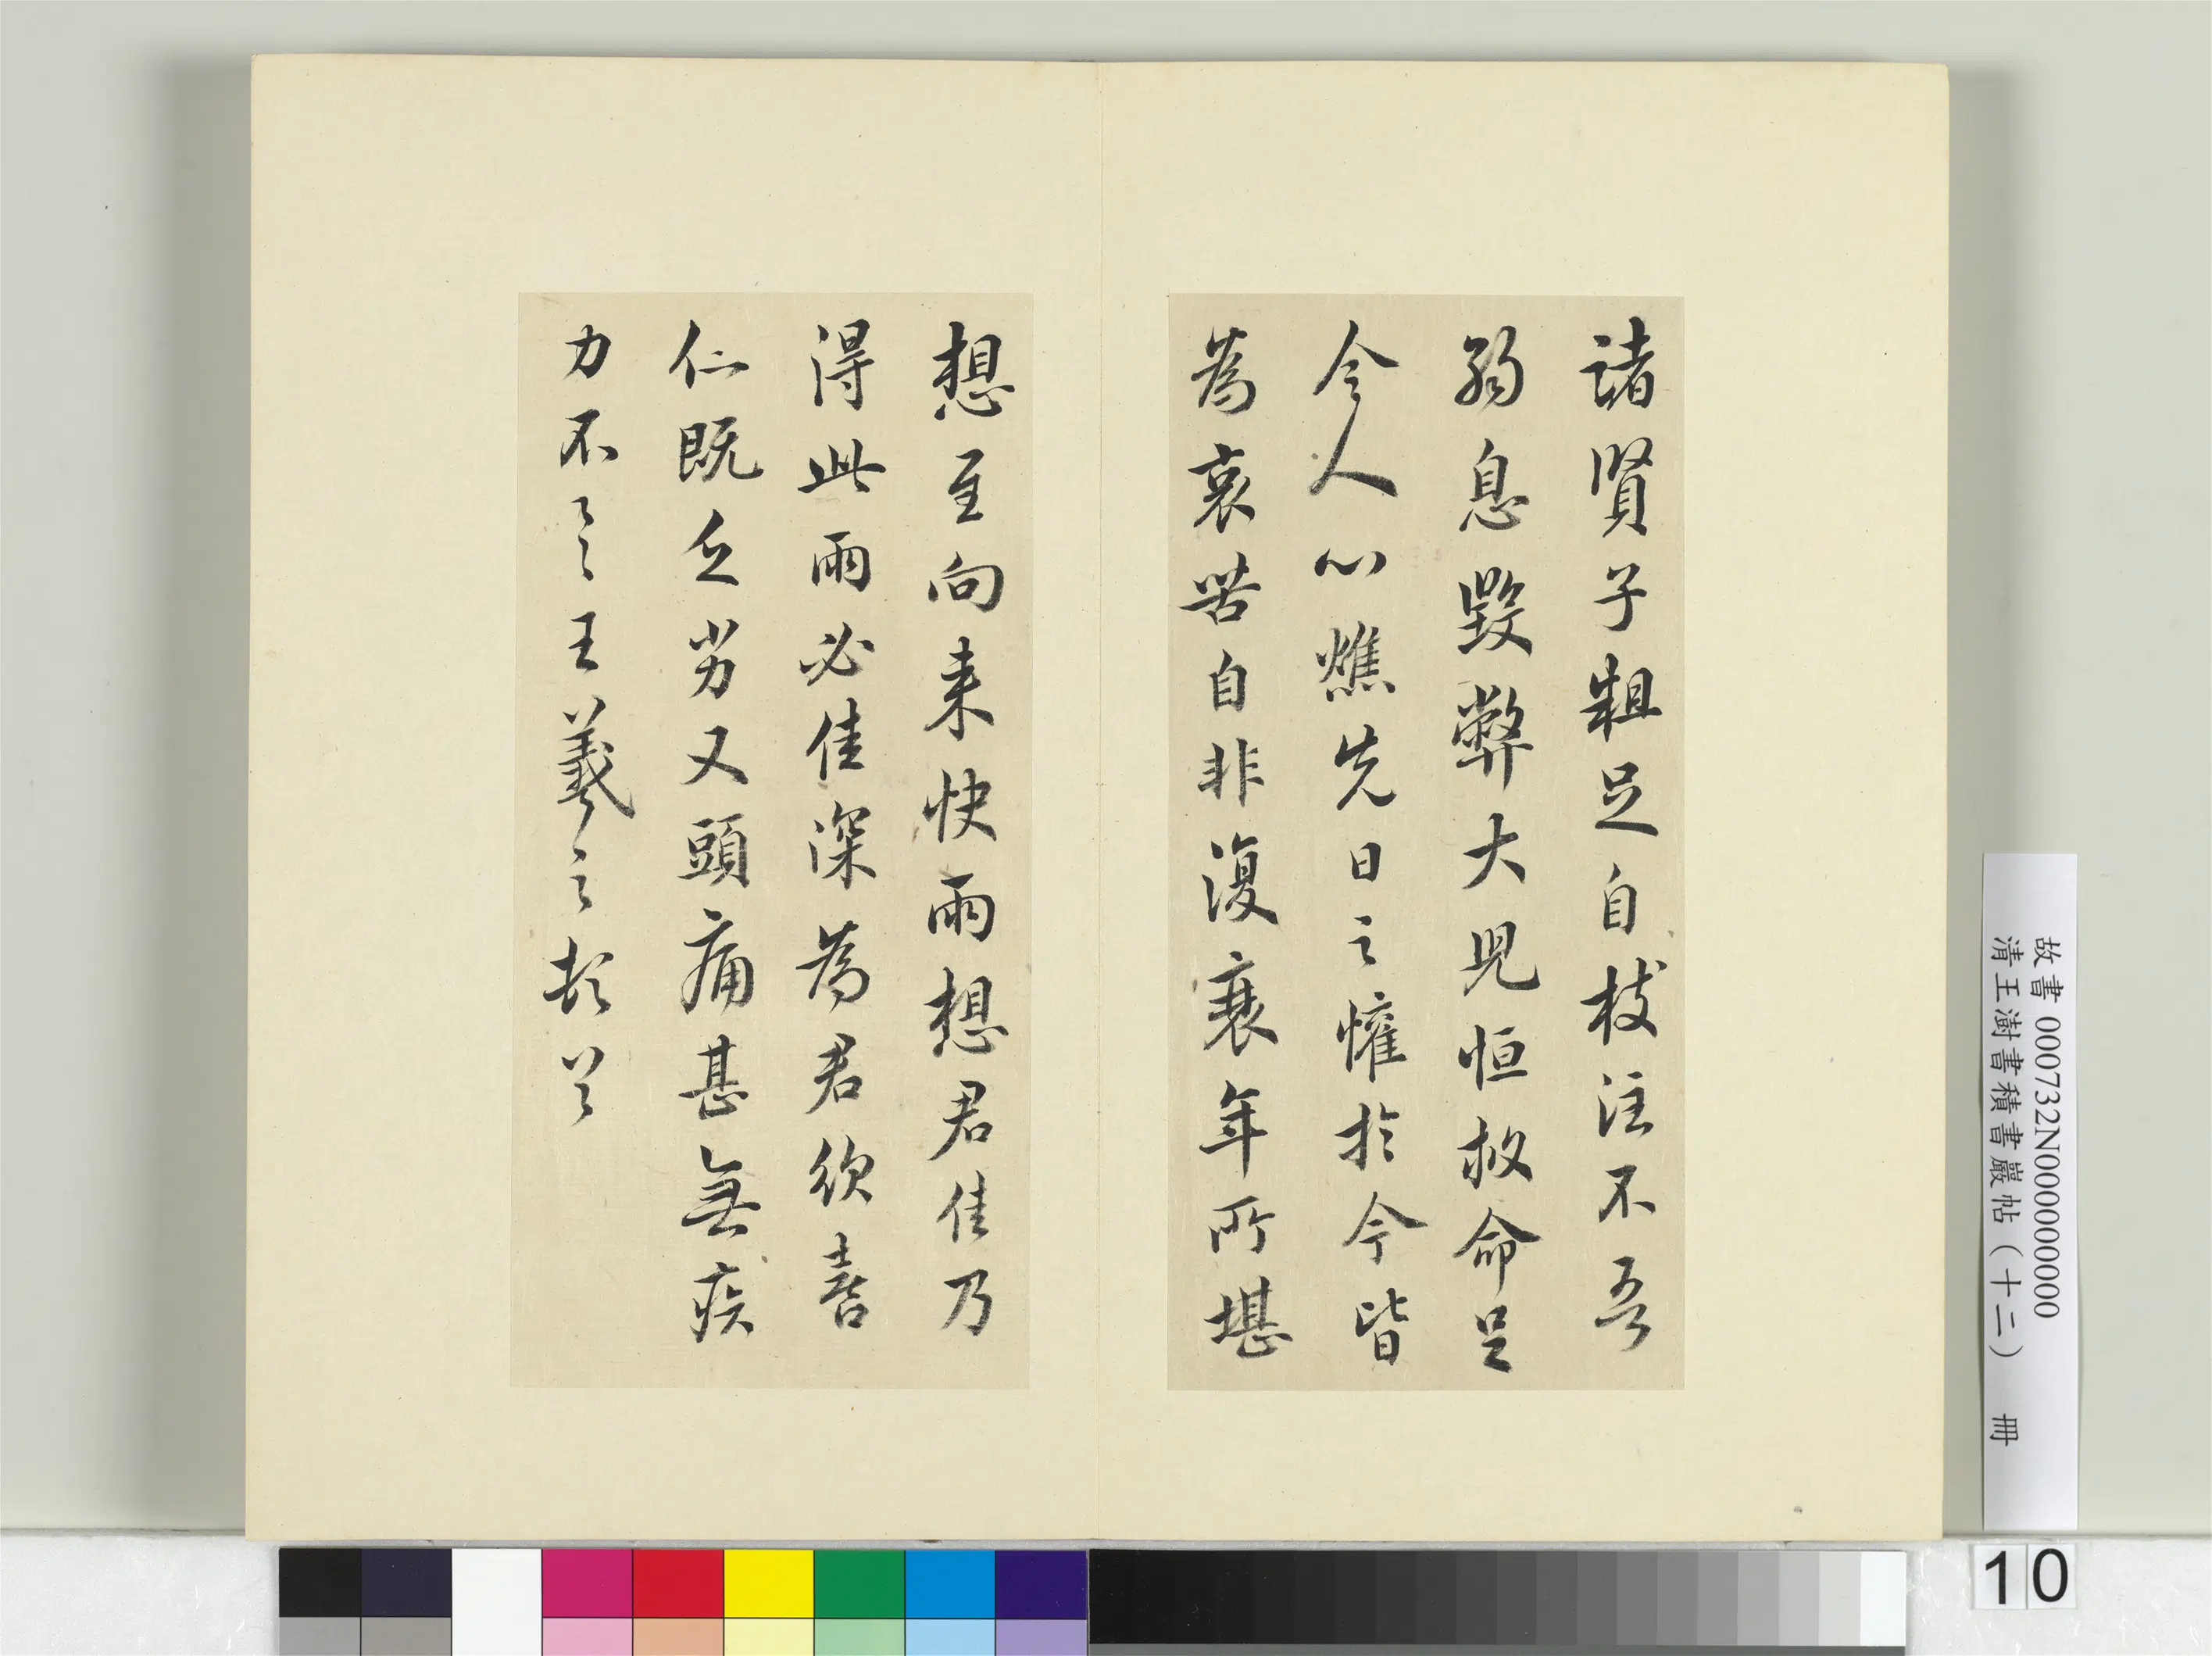 諸賢子粗足自枝注不吾
弱息毀弊大兒恒救命足
令人心燋先日之懽於今皆
為哀苦自非復衰年所堪
想至向来快雨想君佳乃
得此雨必佳深為君欣喜
仁既乏劣又頭痛甚無疾
力不一一王羲之頓首
故書000732N000000000
清王澍書積書巖帖(十二) 冊
10